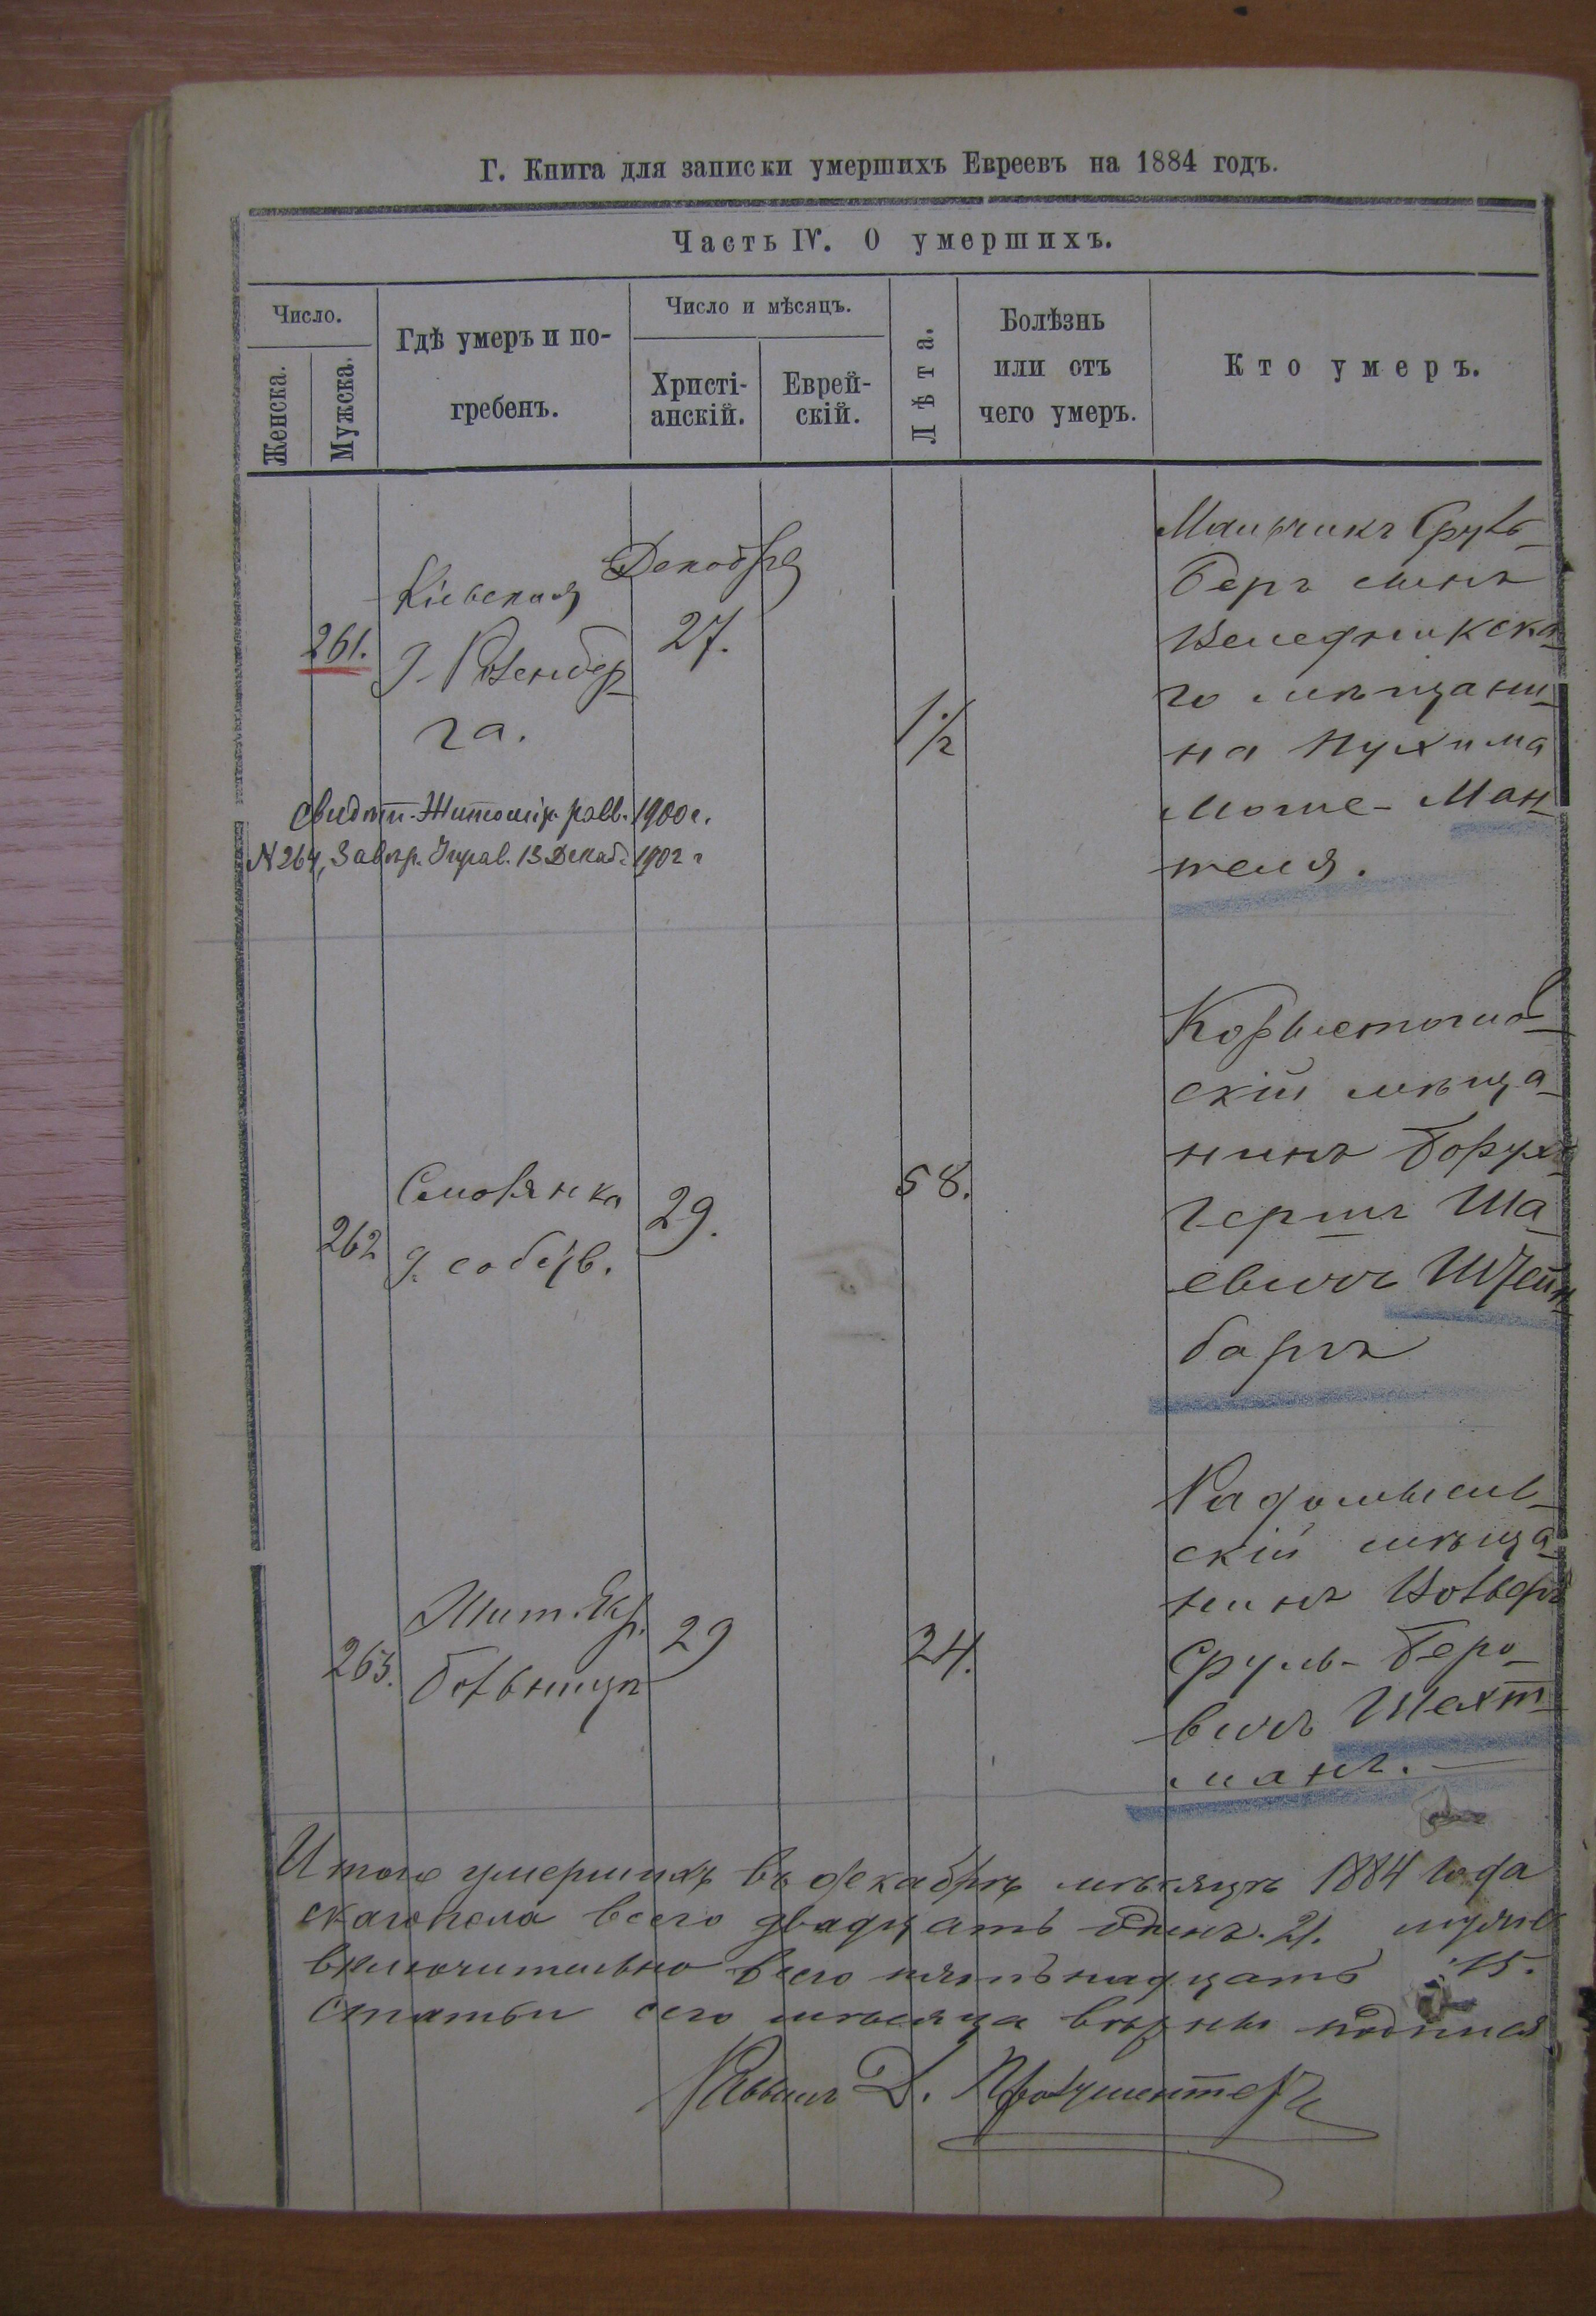 Г. Книга для записки умершихъ Евреевъ на 1884 годъ.
Часть IV. О умершихъ.
Число.
Женска.
Мужска.
Гдѣ умеръ и по-
гребенъ.
Число и мѣсяцъ.
Христі-
анскій.
Еврей-
скій.
Лѣта.
Болѣзнь
или отъ
чего умеръ.
Кто умеръ.
261.
Кіевская
д. Розенбер-
га.
Декабря
27.
1/2
Мальчикъ Сруль-
Беръ сынъ
Веледникска-
го мѣщани-
на Нухима
Моше-Ман-
теля.
Свидѣт. Житомір. равв. 1900 г.
N 264, Завѣр. Управ. 13 Декаб. 1902 г
262
Смолянка
д. собств.
29.
58.
Коростышов-
скій мѣща-
нинъ Борухъ
Гершъ Ша-
евичъ Штейн-
баргъ
263.
Жит. Евр.
больница
29
24.
Радомысль-
скій мѣща-
нинъ Вольфъ
Сруль-Беро-
вичъ Шехт-
манъ.
Итого умершихъ въ декабрѣ мѣсяцѣ 1884 года
скаго пола всего двадцать одинъ. 21. мужес
включительно всего пятьнадцать 15.
Статьи сего мѣсяца вѣрны подписа
Раввинъ Д.